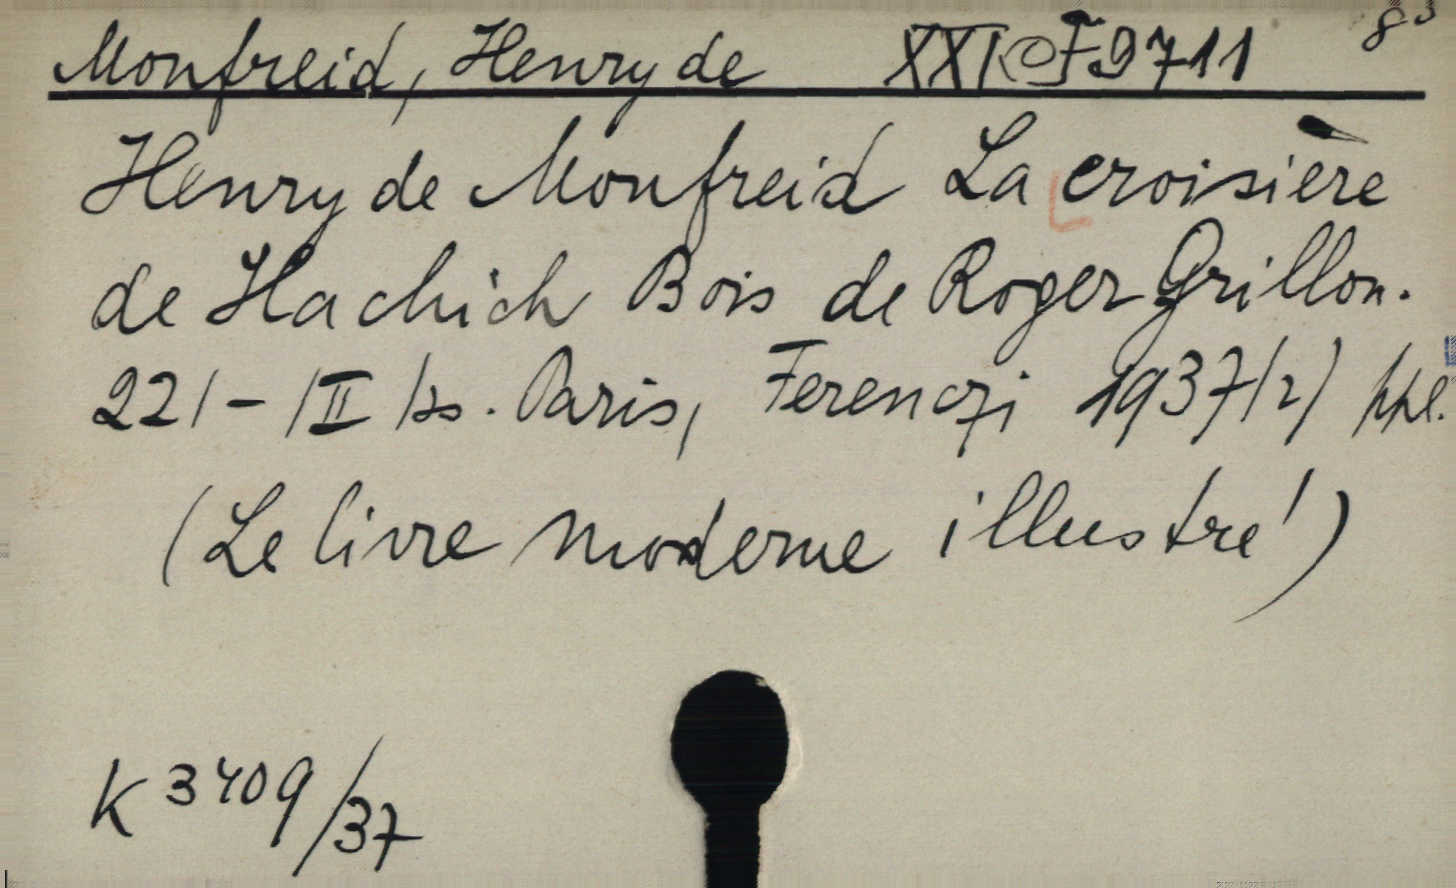 Monfreid, Henry de XXI F 9711 8°
Henry de Monfreid La croisière
de Hachich Bois de Roger Grillon.
221 - /II/ s. Paris, Ferenczi 1937 /2/ ppl.
(Le livre moderne illustré)
K 3409/37